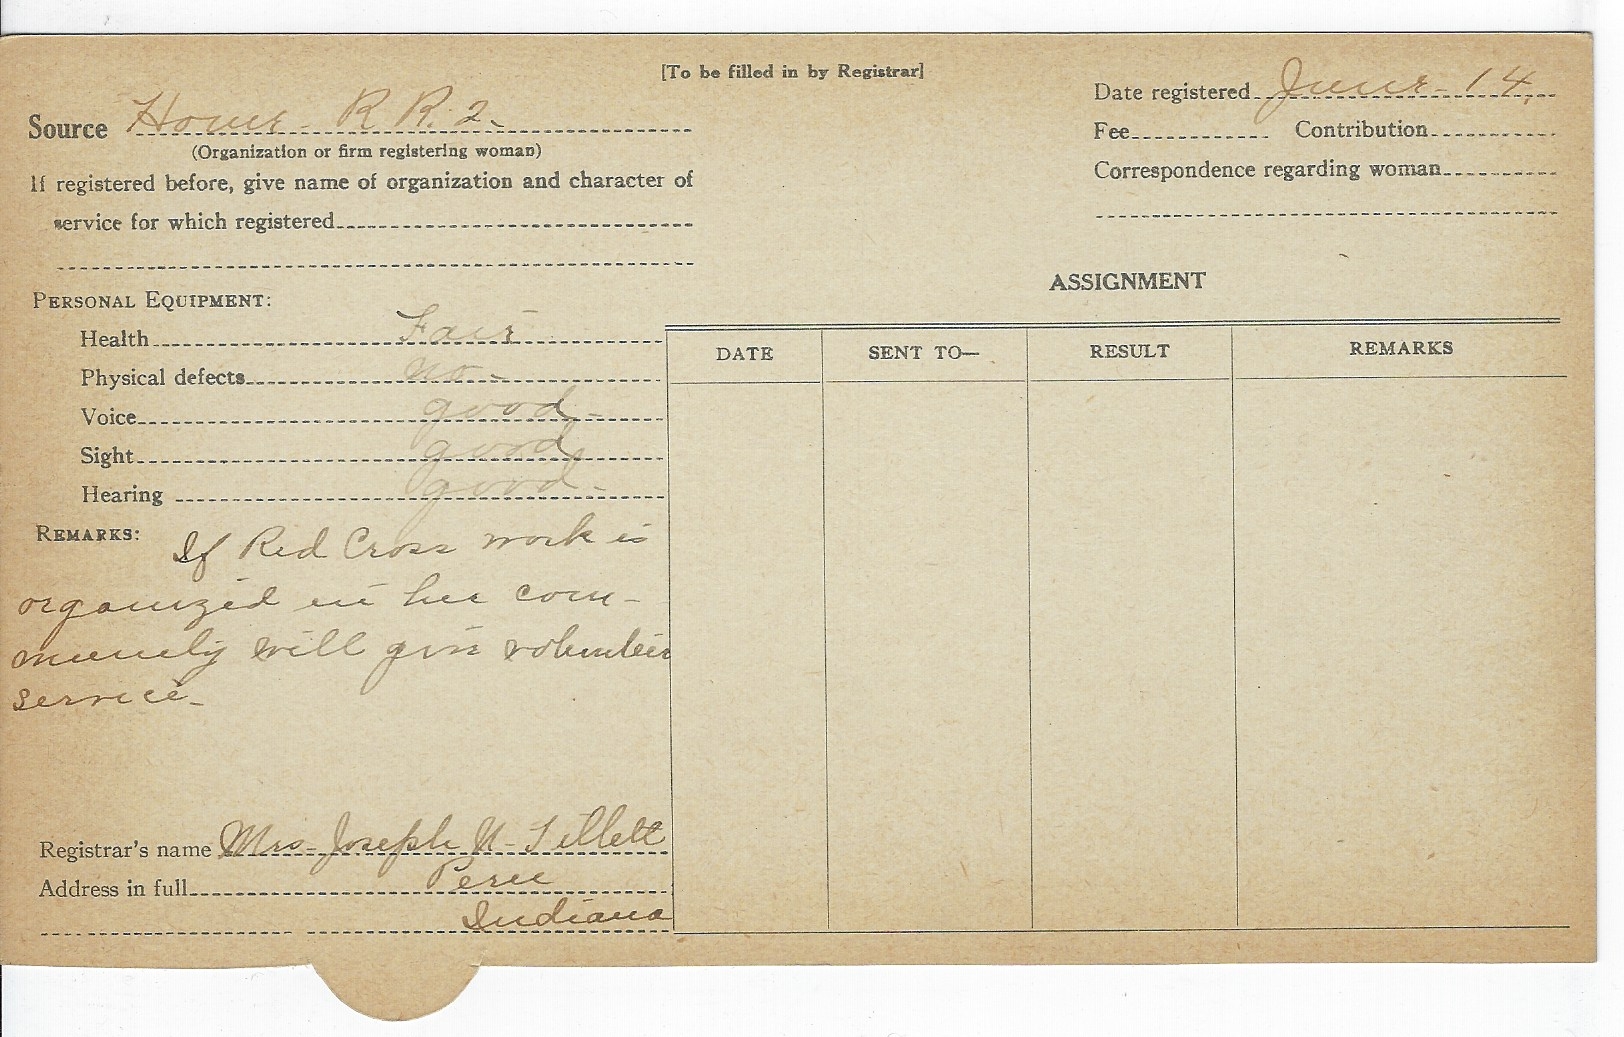 [To be filled in by Registrar]
Source Home - R R. 2.
(Organization or firm registering woman)
If registered before, give name of organization and character of
service for which registered
Date registered June - 14.
Fee Contribution
Correspondence regarding woman
PERSONAL EQUIPMENT:
Health Fair
Physical defects no -
Voice good -
Sight good
Hearing good -
REMARKS: If Red Cross work is
organized in her com-
munity will give volunteer
service -
Registrar's name Mrs - Joseph N - Tillett
Address in full Peru
Indiana
ASSIGNMENT
DATE SENT TO— RESULT REMARKS